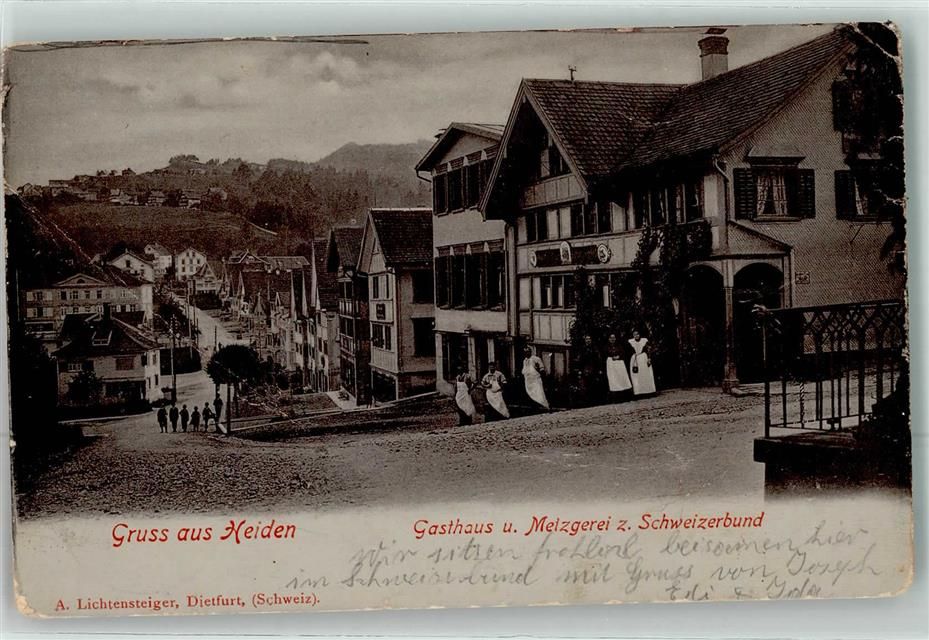 Gruss aus Heiden
Gasthaus u. Metzgerei z. Schweizerbund
Wir sitzen fröhlich beisammen hier
im Schweizerbund mit Gruss von Joseph
Edi & Ida
A. Lichtensteiger, Dietfurt, (Schweiz).